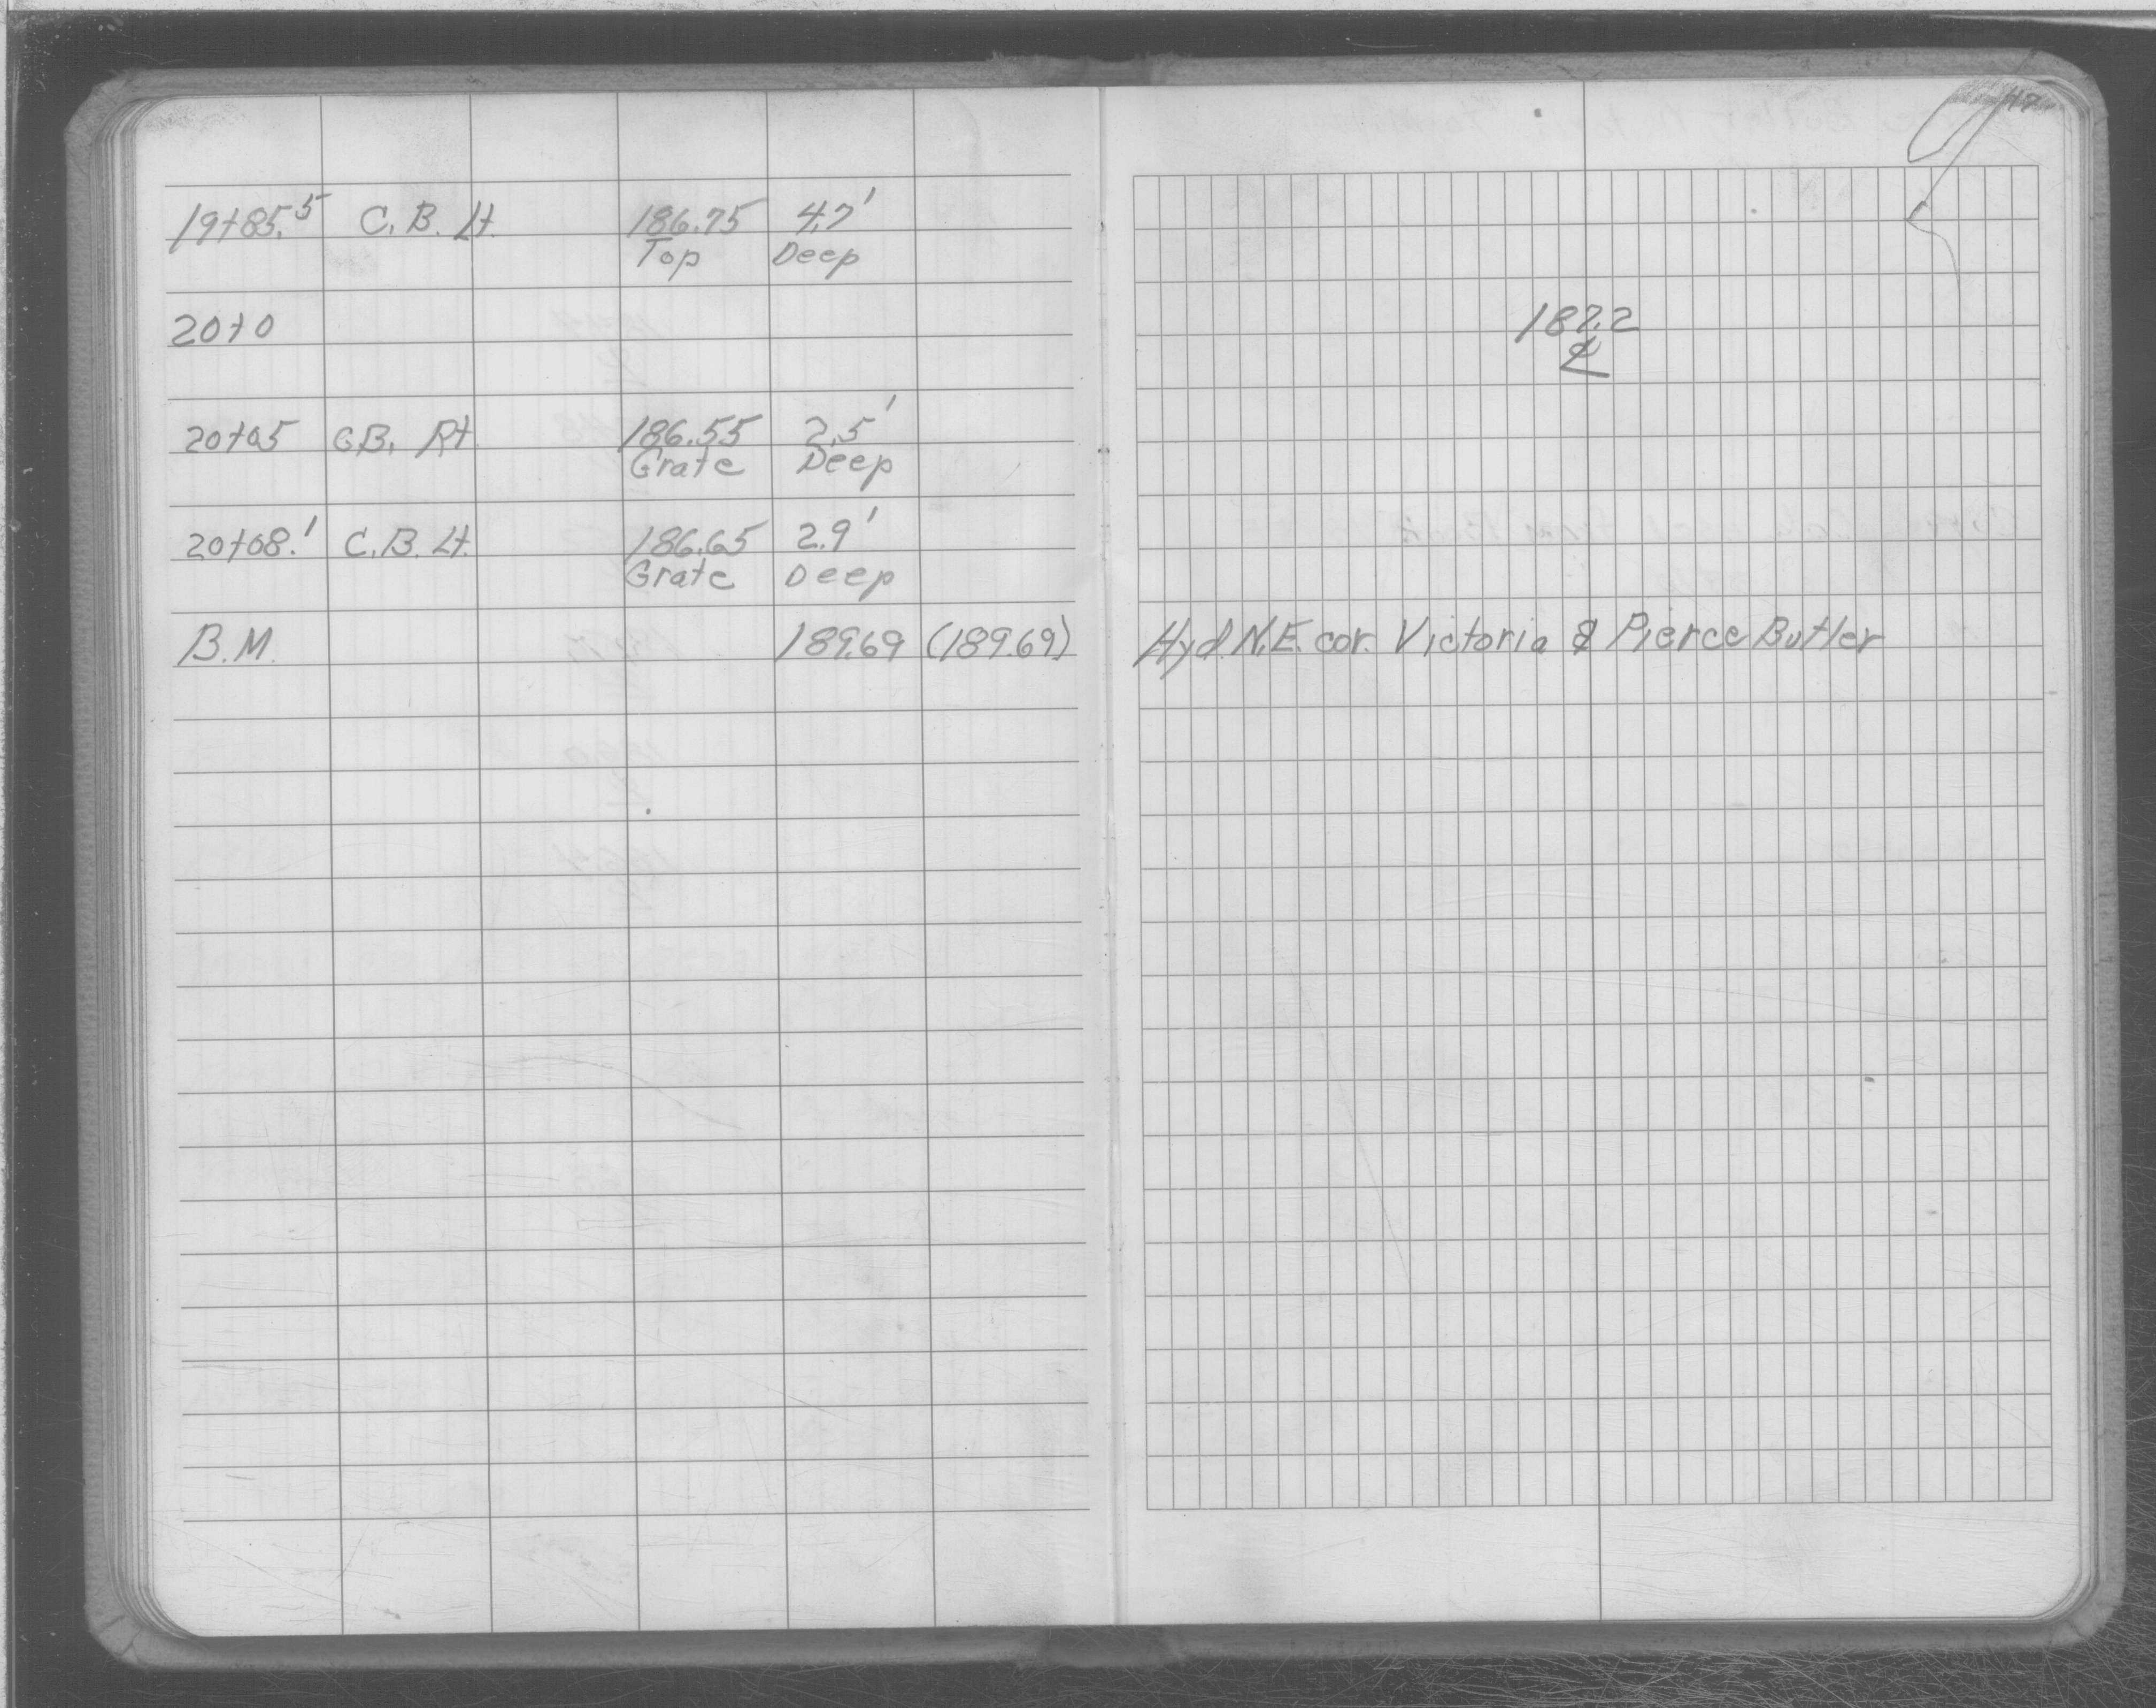 47
19+85.5 C.B. Lt. 186.75 4.7'
Top Deep
20+0 187.2
℄
20+05 C.B. Rt. 186.55 2.5'
Grate Deep
20+08.' C.B. Lt. 186.65 2.9'
Grate Deep
B.M. 189.69 (189.69) Hyd. N.E. cor. Victoria & Pierce Butler